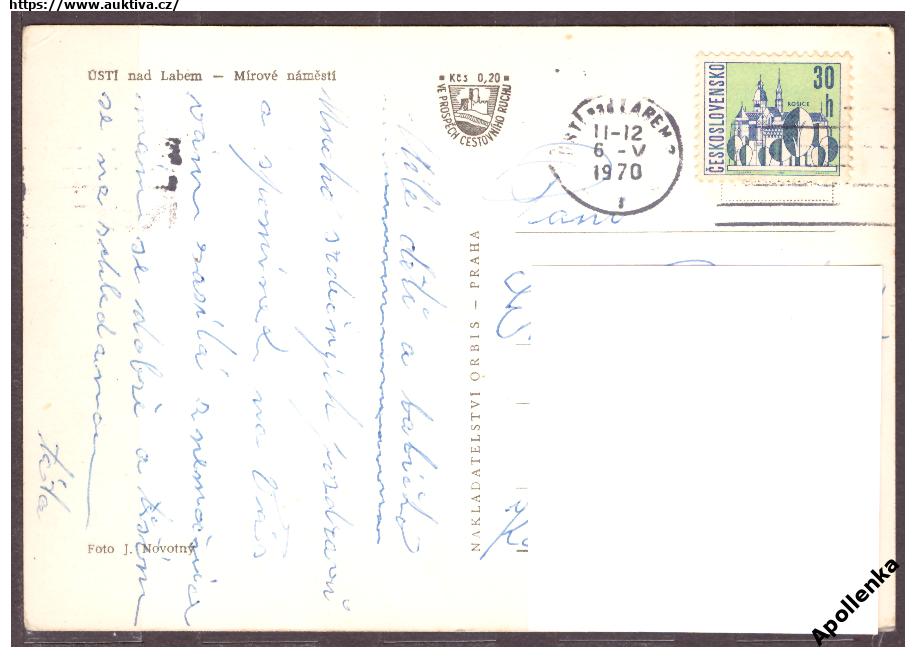 https://www.auktiva.cz/
ÚSTÍ nad Labem — Mírové náměstí
Kčs 0,20
VE PROSPĚCH CESTOVNÍHO RUCHU
ÚSTÍ nad LABEM 2
11-12
6 -V
1970
ČESKOSLOVENSKO
30
h
KOŠICE
Milé děti a babičko
Mnoho srdečných pozdravů
a vzpomínek na Vás
vám zasílá z nemocnice
mám se dobře a těším
se na shledanou
táta
Paní
NAKLADATELSTVÍ ORBIS — PRAHA
Foto J. Novotný
Apollenka